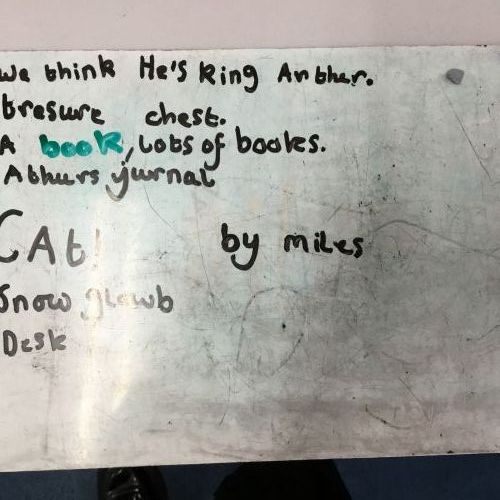 We think He's King Arther.
tresure chest.
A book, Lots of books.
Athurs jurnal
CAt!
by miles
Snow glowb
Desk